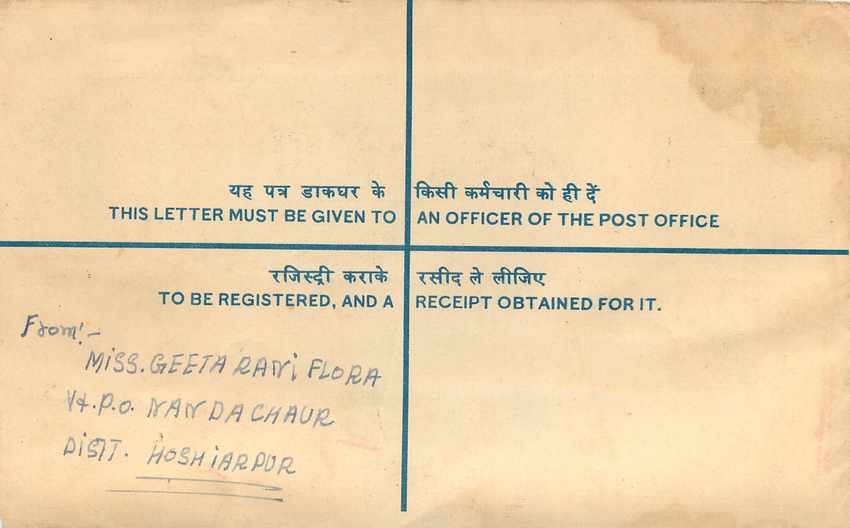 यह पत्र डाकघर के किसी कर्मचारी को ही दें
THIS LETTER MUST BE GIVEN TO AN OFFICER OF THE POST OFFICE
रजिस्ट्री कराके रसीद ले लीजिए
TO BE REGISTERED, AND A RECEIPT OBTAINED FOR IT.
From:-
MISS. GEETA RANI FLORA
V&.P.O. NANDACHAUR
DISTT. HOSHIARPUR